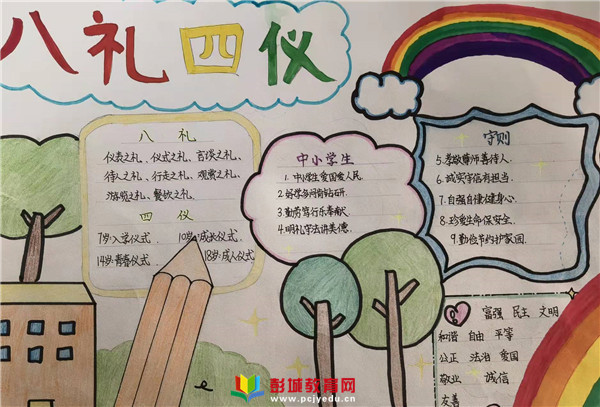 八礼四仪
八 礼
仪表之礼、仪式之礼、言谈之礼、
待人之礼、行走之礼、观赏之礼、
游览之礼、餐饮之礼、
四 仪
7岁:入学仪式 10岁:成长仪式
14岁:青春仪式 18岁:成人仪式
中小学生
1. 中小学生爱国爱人民
2 好学多问肯钻研
3 勤劳笃行乐奉献
4.明礼守法讲美德
守则
5.孝敬尊师善待人.
6.诚实守信有担当.
7.自强自律健身心.
8.珍爱生命保安全.
9.勤俭节约护家园.
富强 民主 文明
和谐 自由 平等
公正 法治 爱国
敬业 诚信
友善
彭城教育网
www.pcjyedu.cn